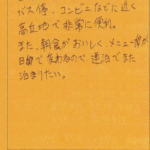 バス停、コンビニなどに近く
高立地で非常に便利。
また、朝食がおいしく、メニューが
日毎で変わるので 連泊でまた
泊まりたい。